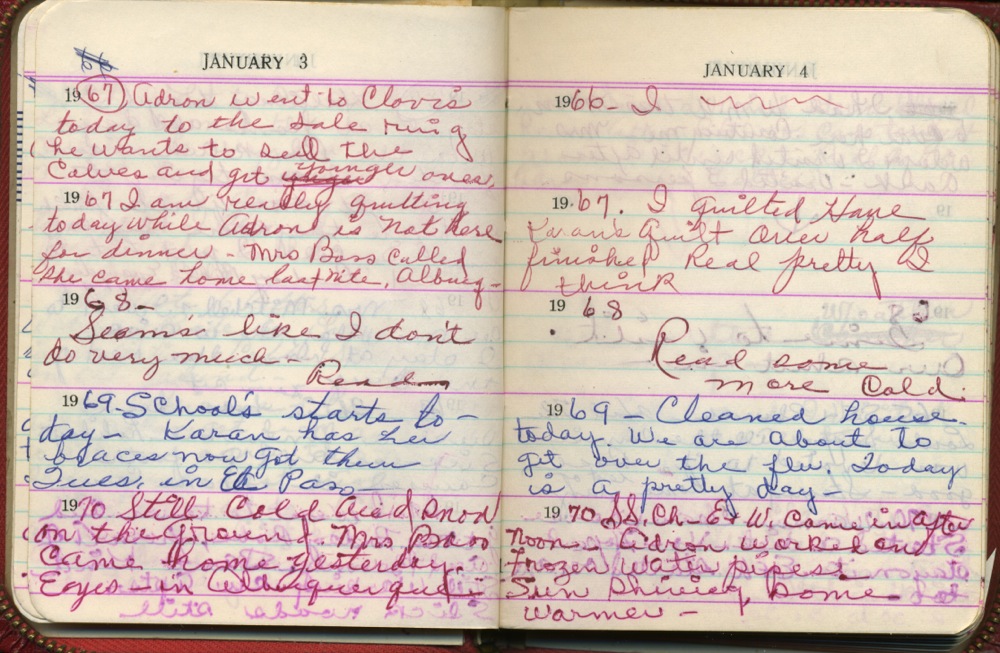 66
JANUARY 3
1967 Adron went to Clovis
today to the sale ring
he wants to sell the
Calves and get younger ones.
1967 I am really quilting
today while Adron is not here
for dinner - Mrs Bass called
She came home last nite, Albuq-
1968-
Seam's like I don't
do very much -
Read
1969-School's starts to-
day - Karan has her
braces now got them
Tues. in El Paso
1970 Still Cold and snow
on the ground Mrs Bass
came home yesterday.
Eyes - in Albuquerque -
JANUARY 4
1966- I
1967. I quilted Have
Karan's Quilt over half
finished Real pretty I
think
1968
Read some
more Cold.
1969 - Cleaned house
today. We are about to
get over the flu. Today
is a pretty day -
1970 SS. Ch - E + W. came in after
noon - Adron worked on
Frozen water pipes.
Sun Shining, Some
warmer -